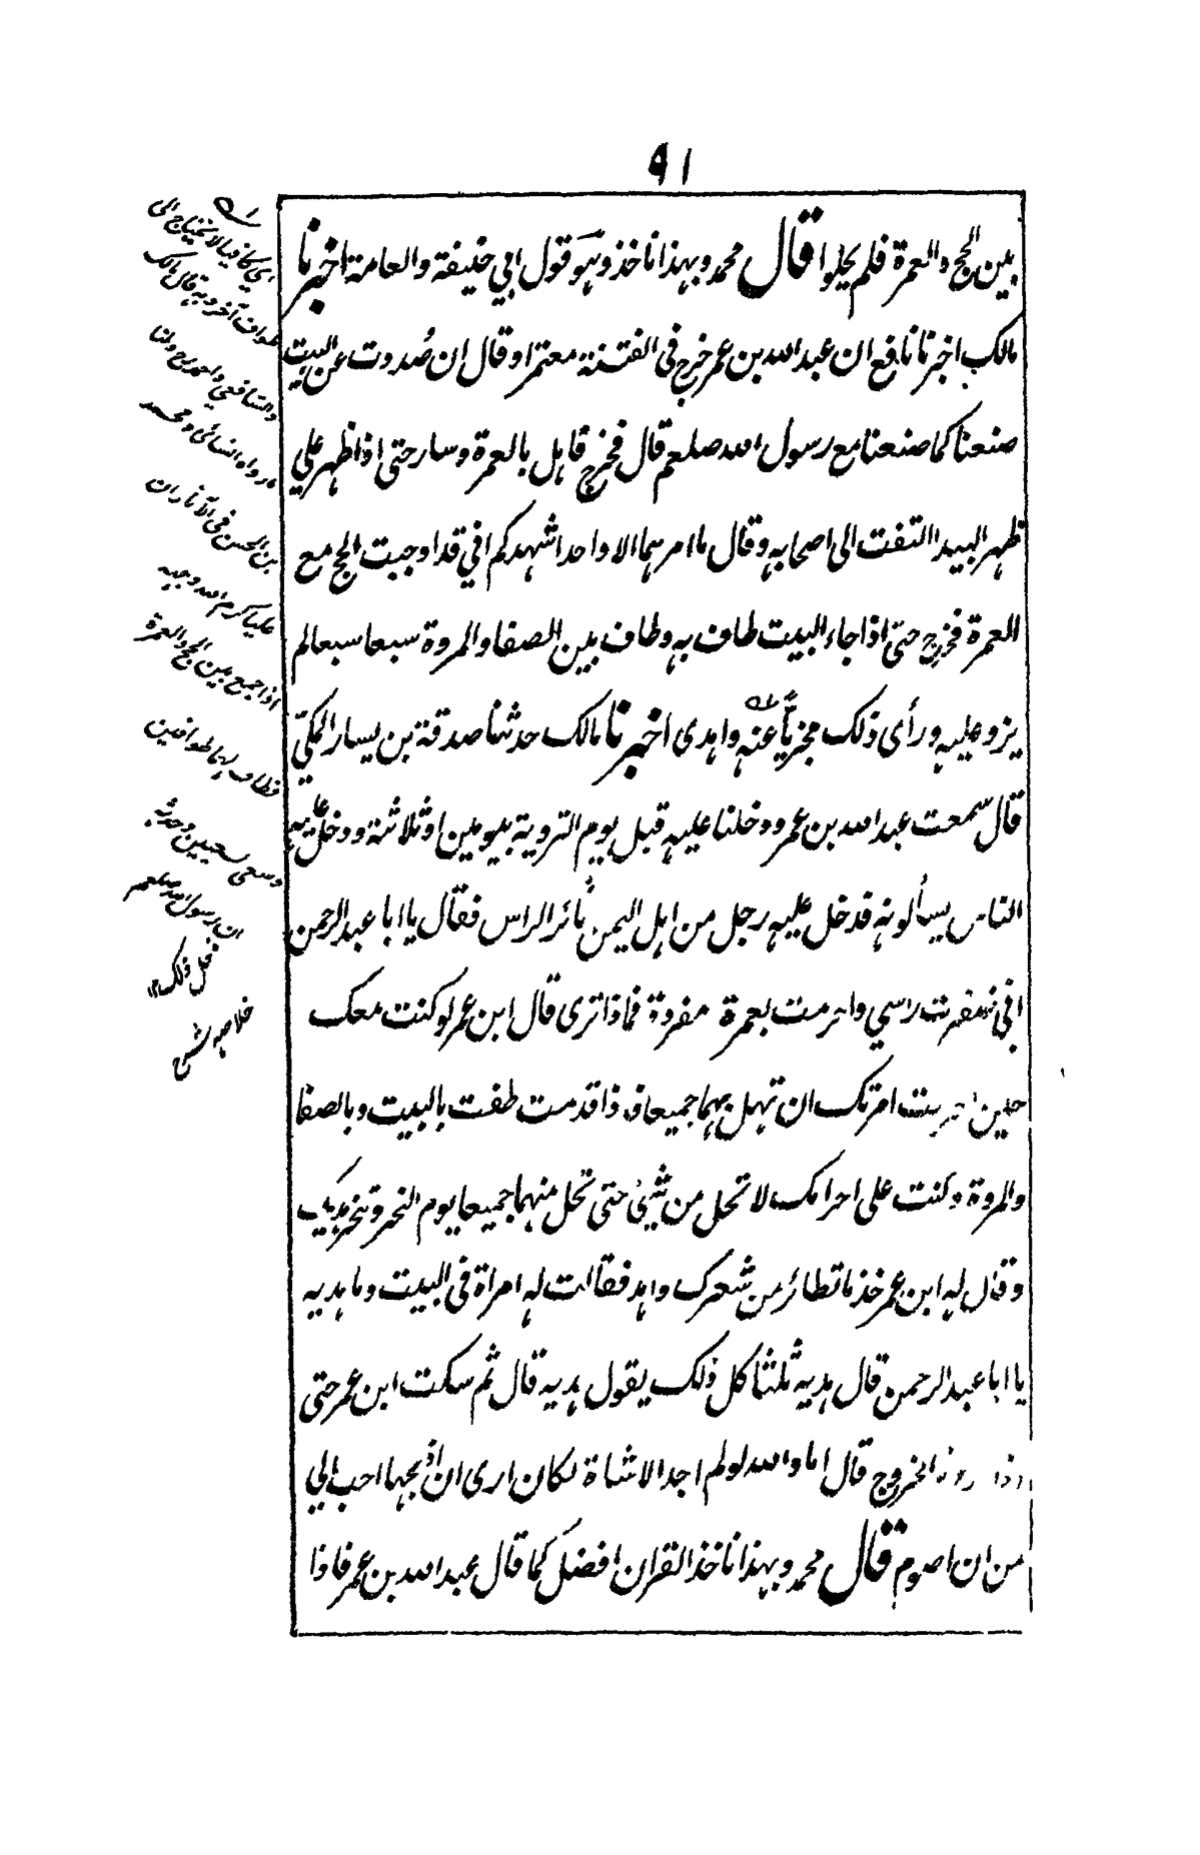 ٩١
بين الحج والعمرة فلم يحلوا قال محمد وبهذا ناخذ وهو قول ابي حنيفة والعامة اخبرنا
مالك اخبرنا نافع ان عبد الله بن عمر خرج فى الفتنة معتمرا وقال ان صُددت عن البيت
صنعنا كما صنعنا مع رسول الله صلعم قال فخرج فاهل بالعمرة وسار حتى اذا ظهر على
ظهر البيدا التفت الى اصحابه وقال ما امرهما الا واحدا شهدكم انى قد اوجبت الحج مع
العمرة فخرج حتى اذا جاء البيت طاف به وطاف بين الصفا والمروة سبعا سبعا لم
يزد عليه ورأى ذلك مجزيًا عنه واهدى اخبرنا مالك حدثنا صدقة بن يسار المكيّ
قال سمعت عبد الله بن عمر ودخلنا عليه قبل يوم التروية بيومين او ثلاثة ودخل عليه
الناس يسألونه فدخل عليه رجل من اهل اليمن ثائر الراس فقال يا ابا عبد الرحمن
انى ضفرت راسي واحرمت بعمرة مفردة فماذا ترى قال ابن عمر لو كنت معك
حين احرمت امرتك ان تهل بهما جميعا فاذا قدمت طفت بالبيت وبالصفا
والمروة وكنت على احرامك لا تحل من شيئ حتى تحل منهما جميعا يوم النحر وتنحر هديك
وقال له ابن عمر خذ ما تطائر من شعرك واهد فقالت له امراة فى البيت وما هديه
يا ابا عبد الرحمن قال هديه ثلثا كل ذلك يقول هديه قال ثم سكت ابن عمر حتى
اذا اردنا الخروج قال اما والله لو لم اجد الا شاة لكان ارى ان اذبحها احب الي
من ان اصوم قال محمد وبهذا ناخذ القران افضل كما قال عبد الله بن عمر فاذا
اى كافيا لا يحتاج الى
طواف آخر وبه قال مالك
والشافعي واحمد رح ولنا
ما رواه النسائى ومحمد
بن الحسن فى الآثار ان
عليا كرم الله وجهه
اذا جمع بين الحج والعمرة
فطاف لهما طوافين
وسعى سعيين وحدث
ان رسول الله صلعم
فعل ذلك ١٢